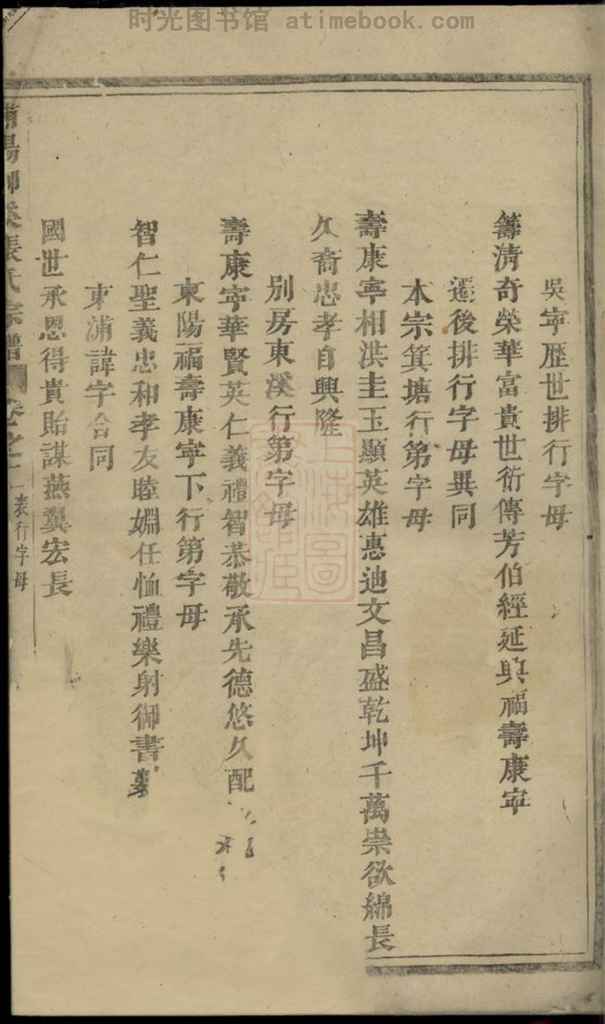 时光图书馆 atimebook.com
吳寧歷世排行字母
清奇榮華富貴世衍傳芳伯經延興福壽康寧
遷後排行字母異同
本宗箕塘行第字母
壽康寧相洪圭玉顯英雄惠迪文昌盛乾坤千萬崇欲綿長
久裔忠孝自興隆
別房東溪行第字母
壽康寧華賢英仁義禮智恭敬承先德悠久配
東陽福壽康寧下行第字母
智仁聖義忠和孝友睦婣任恤禮樂射御書
東浦諱字合同
國世承恩得貴貽謀燕翼宏長
張氏宗譜 卷之 表行字母